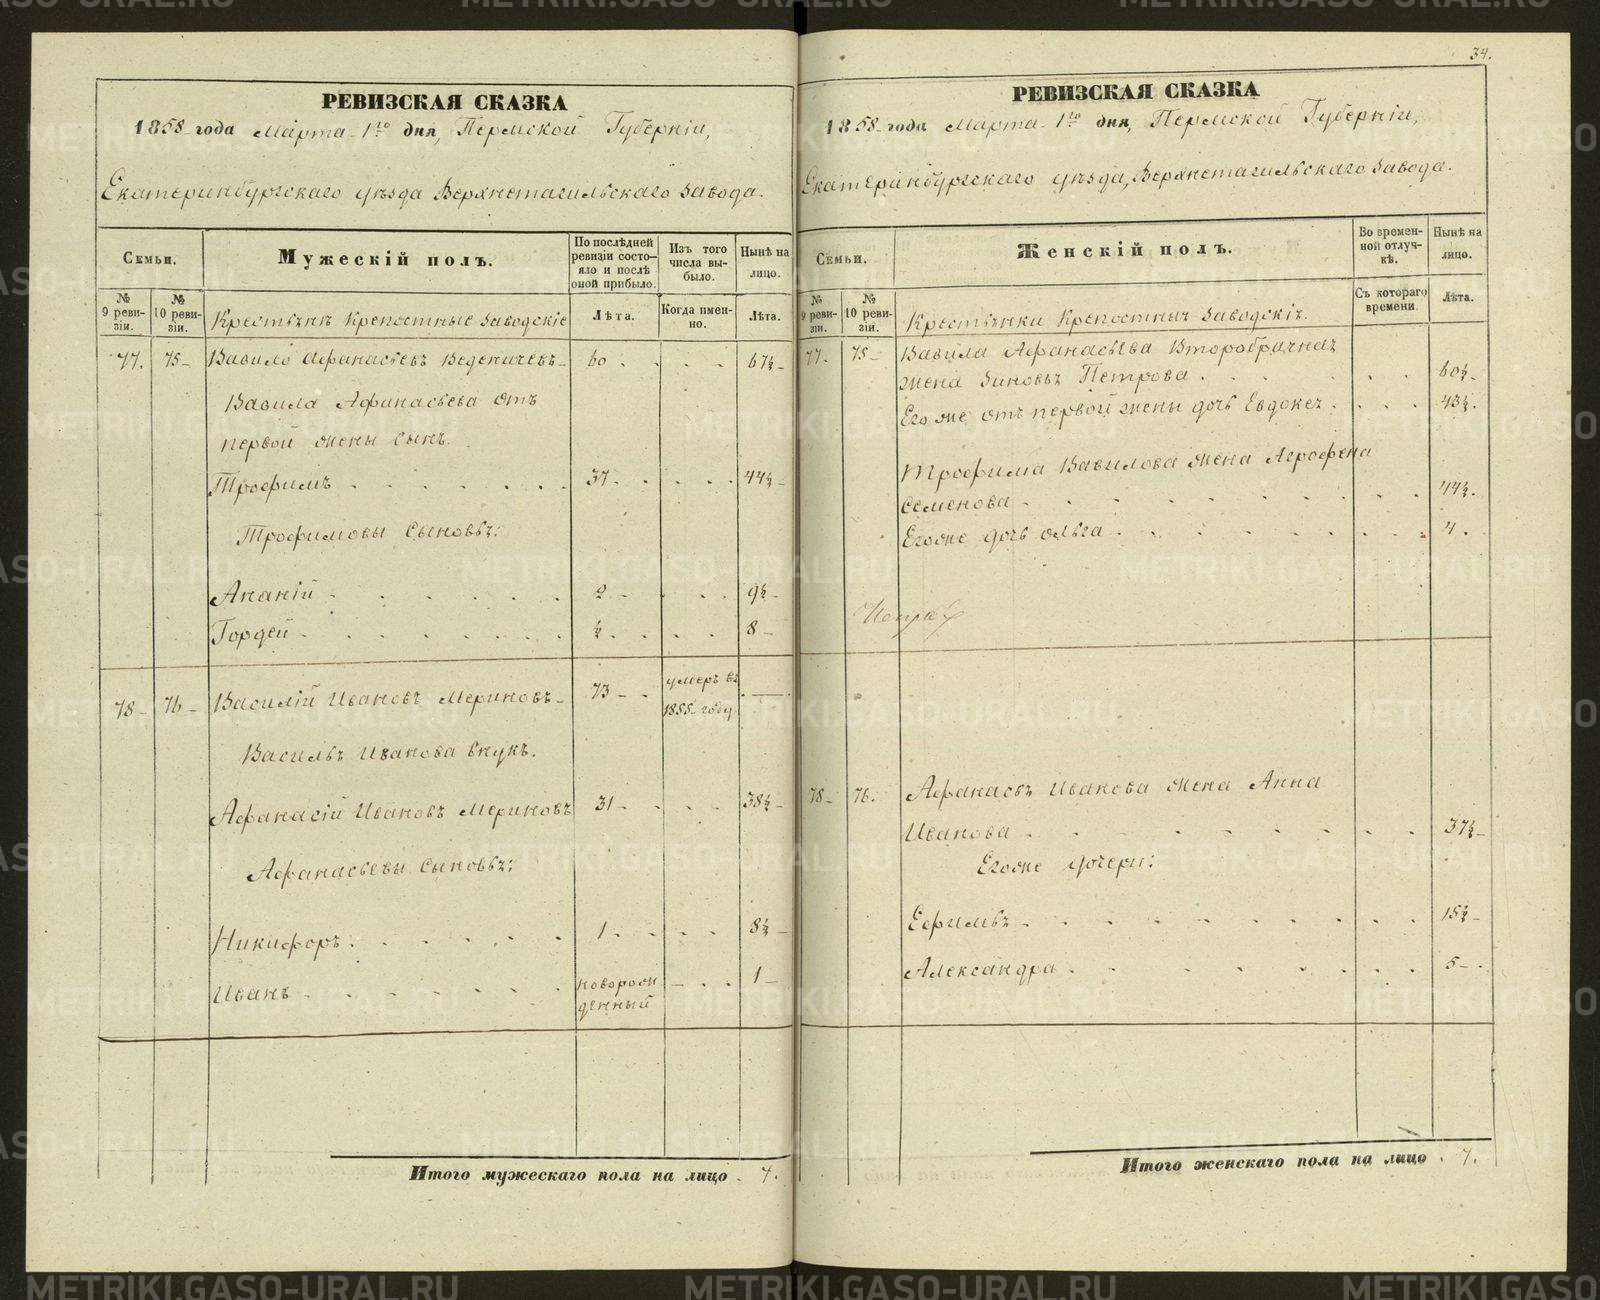 34.
РЕВИЗСКАЯ СКАЗКА
1858 года Марта 1го дня, Пермской Губерніи,
Екатеринбургскаго уѣзда Верхнетагильскаго завода.
Семьи.
Мужескій полъ.
По послѣдней ревизіи состояло и послѣ оной прибыло.
Изъ того числа выбыло.
Нынѣ на лицо.
№ 9 ревизіи.
№ 10 ревизіи.
Крестьянъ Крепостные Заводскіе
Лѣта.
Когда именно.
Лѣта.
77. 75 Вавило Афанасьевъ 60 67½
Вавила Афанасьева отъ
первой жены сынъ.
Трофимъ 37 44½
Трофимовы сыновья:
Ананій 2 9½
Гордей ½ 8
78 76 Василій Ивановъ Мериновъ 73 умеръ въ
1855 году
Василья Иванова внукъ.
Афанасій Ивановъ Мериновъ 31 38½
Афанасьевы сыновья:
Никифоръ. 1 8½
Иванъ новорож
денный 1
Итого мужескаго пола на лицо 7.
РЕВИЗСКАЯ СКАЗКА
1858 года Марта 1го дня, Пермской Губерніи,
Екатеринбургскаго уѣзда, Верхнетагильскаго Завода.
Семьи.
Женскій полъ.
Во временной отлучкѣ.
Нынѣ на лицо.
№ 9 ревизіи.
№ 10 ревизіи.
Крестьянки Крепостныя Заводскія.
Съ котораго времени
Лѣта.
77. 75 Вавила Афанасьева Второбрачная
жена Зиновья Петрова 60½
Его же отъ первой жены дочь Евдокея 43½
Трофима Вавилова жена Агрофена
Семенова 44½
Егоже дочь Ольга 4
78 76. Афанасья Иванова жена Анна
Иванова 37½
Егоже дочери:
Ефимья 15½
Александра 5
Итого женскаго пола на лицо 7.
METRIKI.GASO-URAL.RU